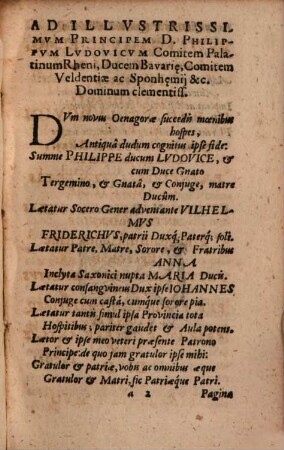 AD ILLVSTRISSI
MVM PRINCIPEM D. PHILIP-
PVM LVDOVICVM Comitem Pala
tinum Rheni, Ducem Bavarię, Comitem
Veldentiæ ac Sponhęmij &c.
Dominum clementiss.
DVm novus Oenagoræ succedis mœnibus
hospes,
Antiquâ dudum cognitus ipse fide:
Summe PHILIPPE ducum LVDOVICE, &
cum Duce Gnato
Tergemino, & Gnatâ, & Conjuge, matre
Ducûm.
Lætatur Socero Gener adveniante VILHEL-
MVS
FRIDERICHVS, patrii Duxq́, Paterq́; soli.
Lætatur Patre, Matre, Sorore, & Fratribus
ANNA
Inclyta Saxonici nupta MARIA Ducis.
Lætatur consanguinius Dux ipse IOHANNES
Conjuge cum castâ, cumque sorore pia.
Lætatur tantis simul ipsa Provincia tota
Hospitibus; pariter gaudet & Aula potens.
Lætor & ipse meo veteri præsente Patrono
Principe: de quo jam gratulor ipse mihi:
Gratulor & patriæ, vobis ac omnibus æque
Gratulor & Matri, sic Patriæque Patri.
a 2 Pagina